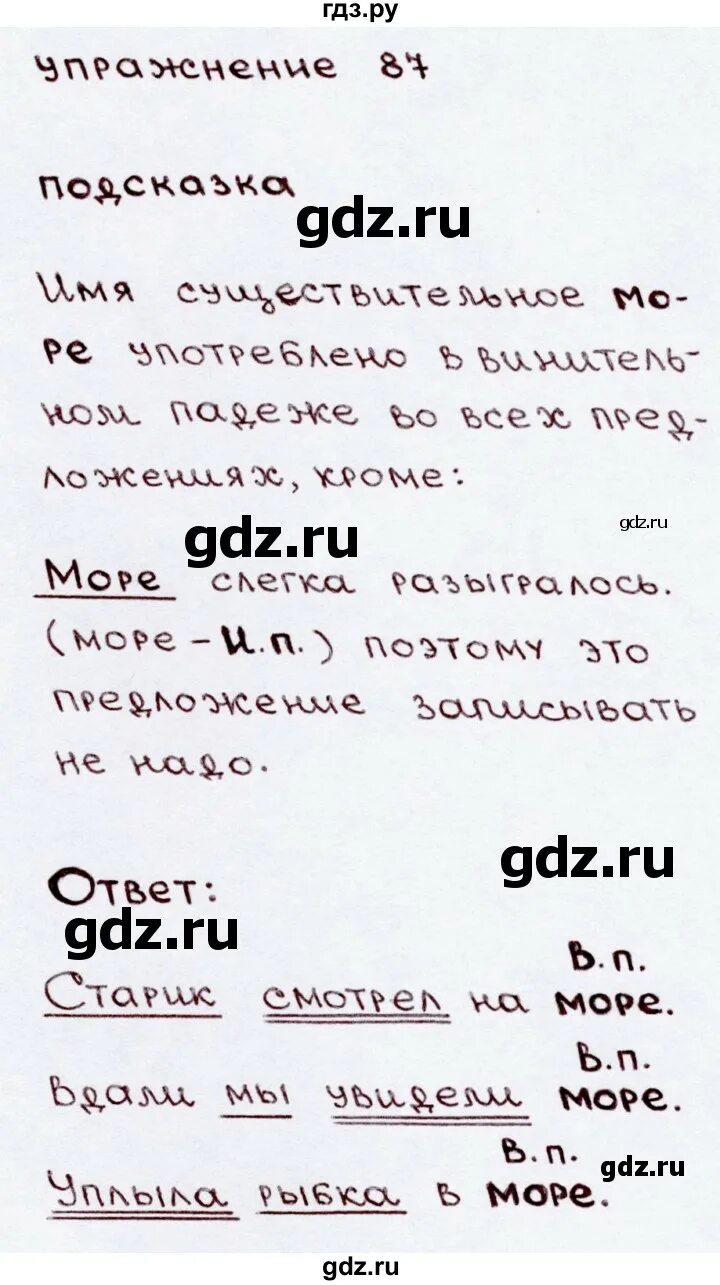 гдз.ру
упражнение 87
подсказка
gdz.ru
Имя существительное мо-
ре употреблено в винитель-
ном падеже во всех пред-
ложениях, кроме:
gdz.ru
gdz.ru
Море слегка разыгралось.
(море - И.п.) поэтому это
предложение записывать
не надо.
gdz.ru
Ответ:
gdz.ru
В.п.
Старик смотрел на море.
В.п.
Вдали мы увидели море.
В.п.
gdz.ru
Уплыла рыбка в море.
gdz.ru